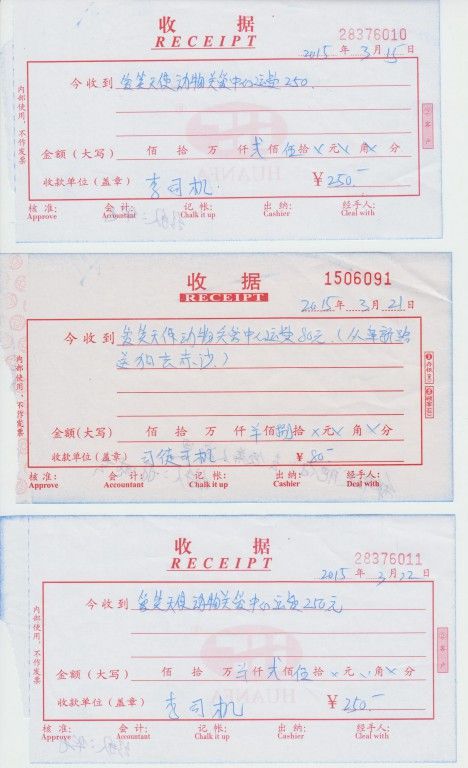 收 据
RECEIPT
28376010
2015 年 3 月 15 日
今收到 会笑天使动物关爱中心运费250.
金额（大写） 佰 拾 万 仟 贰 佰 伍 拾 × 元 × 角 × 分
收款单位（盖章） 李司机. ￥ 250.-
核 准: 会 计: 记 帐: 出 纳: 经手人:
Approve Accountant Chalk it up Cashier Cleal with
内部使用，不作发票
②客户
HUANFA
收 据
RECEIPT
1506091
2015 年 3 月 21 日
今收到 会笑天使动物关爱中心运费80元（从阜新路
送狗去赤沙）
金额（大写） 佰 拾 万 仟 佰 捌 拾 × 元 × 角 分
收款单位（盖章） 司徒司机 ￥ 80.-
核 准: 会 计: 记 帐: 出 纳: 经手人:
Approve Accountant Chalk it up Cashier Deal with
内部使用，不作发票
收 据
RECEIPT
28376011
2015 年 3 月 22 日
今收到 会笑天使动物关爱中心运费250元
金额（大写） 佰 拾 万 仟 贰 佰 伍 拾 × 元 角 × 分
收款单位（盖章） 李司机 ￥ 250.-
核 准: 会 计: 记 帐: 出 纳: 经手人:
Approve Accountant Chalk it up Cashier Cleal with
内部使用，不作发票
②客户
HUANFA